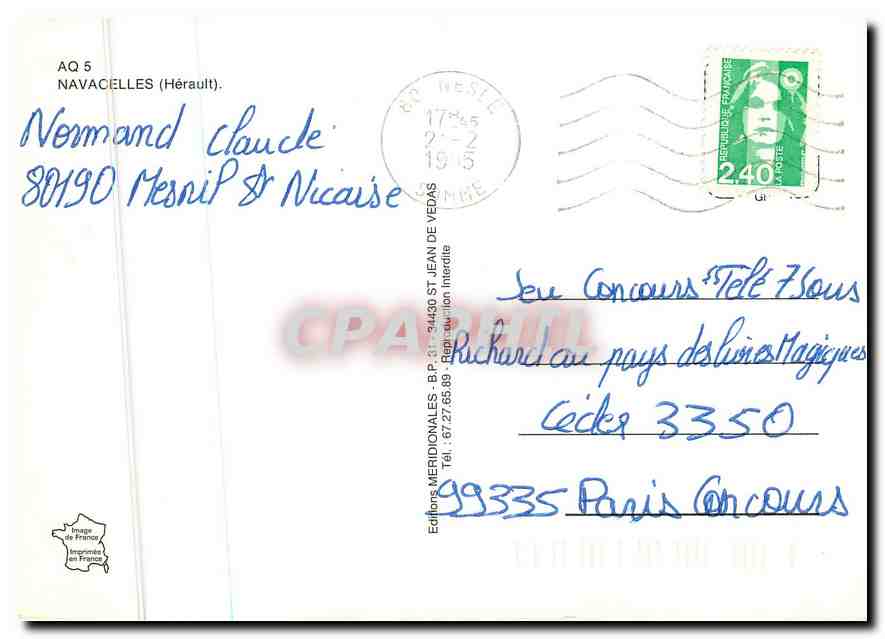 AQ 5
NAVACELLES (Hérault).
Normand Claude
80190 Mesnil St Nicaise
80 NESLE
17H45
2 -2
19 5
SOMME
REPUBLIQUE FRANÇAISE
2,40
LA POSTE
Editions MERIDIONALES - B.P. 31 - 34430 ST JEAN DE VEDAS
Tél. : 67.27.65.89 - Reproduction Interdite
CPAPHIL
Jeu Concours "Télé 7 Jours
Richard au pays des livres Magiques
Cédex 3350
99335 Paris Concours
Image
de France
Imprimée
en France